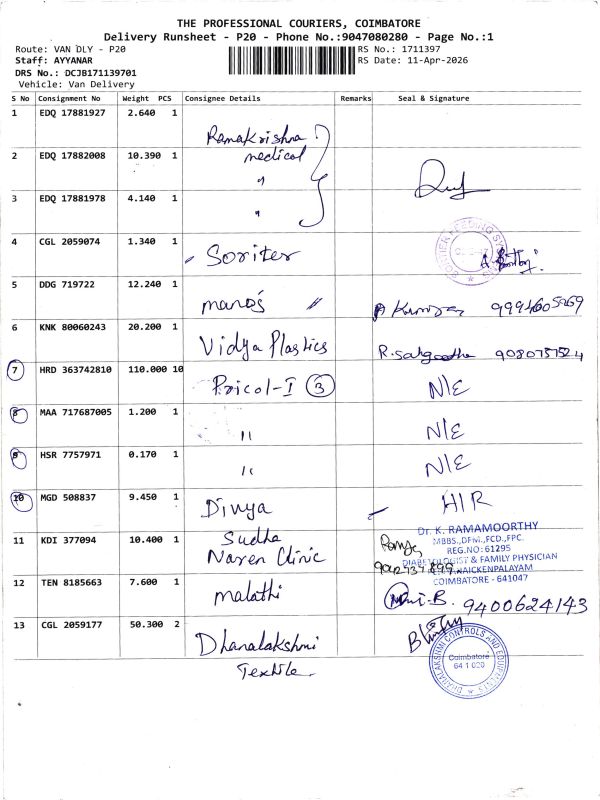 THE PROFESSIONAL COURIERS, COIMBATORE
Delivery Runsheet - P20 - Phone No.:9047080280 - Page No.:1
Route: VAN DLY - P20
RS No.: 1711397
Staff: AYYANAR
RS Date: 11-Apr-2026
DRS No.: DCJB171139701
Vehicle: Van Delivery
S No Consignment No Weight PCS Consignee Details Remarks Seal & Signature
1 EDQ 17881927 2.640 1 Ramakrishna
2 EDQ 17882008 10.390 1 medical
3 EDQ 17881978 4.140 1 "
4 CGL 2059074 1.340 1 Soriter
5 DDG 719722 12.240 1 manos
6 KNK 80060243 20.200 1 Vidya Plastics 9080757524
7 HRD 363742810 110.000 10 Pricol-I 3 N/E
8 MAA 717687005 1.200 1 " N/E
9 HSR 7757971 0.170 1 " N/E
10 MGD 508837 9.450 1 Divya H/R
11 KDI 377094 10.400 1 Sudha
Naren Clinic
Dr. K. RAMAMOORTHY
MBBS.,DFM.,FCD.,FPC.
REG.NO: 61295
DIABETOLOGIST & FAMILY PHYSICIAN
NAICKENPALAYAM
COIMBATORE - 641047
12 TEN 8185663 7.600 1 malathi 9400624143
13 CGL 2059177 50.300 2 Dhanalakshmi
Textile
DHANALAKSHMI CONTROLS AND EQUIPMENTS
Coimbatore